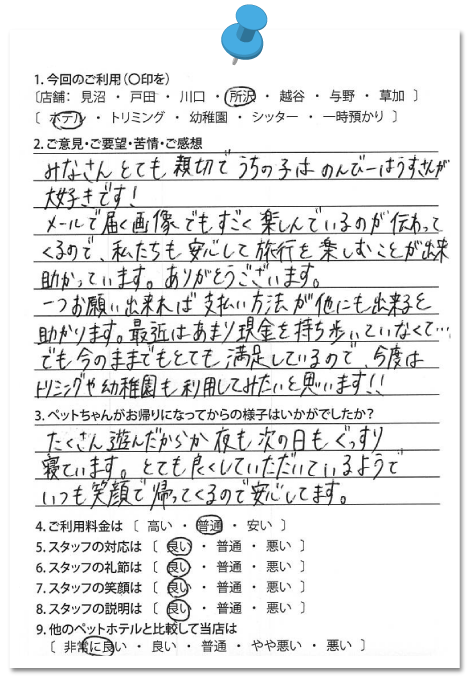 1. 今回のご利用（〇印を）
〔店舗： 見沼 ・ 戸田 ・ 川口 ・ 所沢 ・ 越谷 ・ 与野 ・ 草加 〕
〔 ホテル ・ トリミング ・ 幼稚園 ・ シッター ・ 一時預かり 〕
2. ご意見・ご要望・苦情・ご感想
みなさん とても 親切で うちの子は のんびーはうすさんが
大好きです！
メールで届く画像でもすごく楽しんでいるのが伝わって
くるので、私たちも安心して旅行を楽しむことが出来
助かっています。ありがとうございます。
一つお願い出来れば支払い方法が他にも出来ると
助かります。最近はあまり現金を持ち歩いていなくて…
でも今のままでもとても満足しているので、今度は
トリミングや幼稚園も利用してみたいと思います！！
3. ペットちゃんがお帰りになってからの様子はいかがでしたか？
たくさん遊んだからか夜も次の日もぐっすり
寝ています。とても良くしていただいているようで
いつも笑顔で帰ってくるので安心してます。
4. ご利用料金は 〔 高い ・ 普通 ・ 安い 〕
5. スタッフの対応は 〔 良い ・ 普通 ・ 悪い 〕
6. スタッフの礼節は 〔 良い ・ 普通 ・ 悪い 〕
7. スタッフの笑顔は 〔 良い ・ 普通 ・ 悪い 〕
8. スタッフの説明は 〔 良い ・ 普通 ・ 悪い 〕
9. 他のペットホテルと比較して当店は
〔 非常に良い ・ 良い ・ 普通 ・ やや悪い ・ 悪い 〕